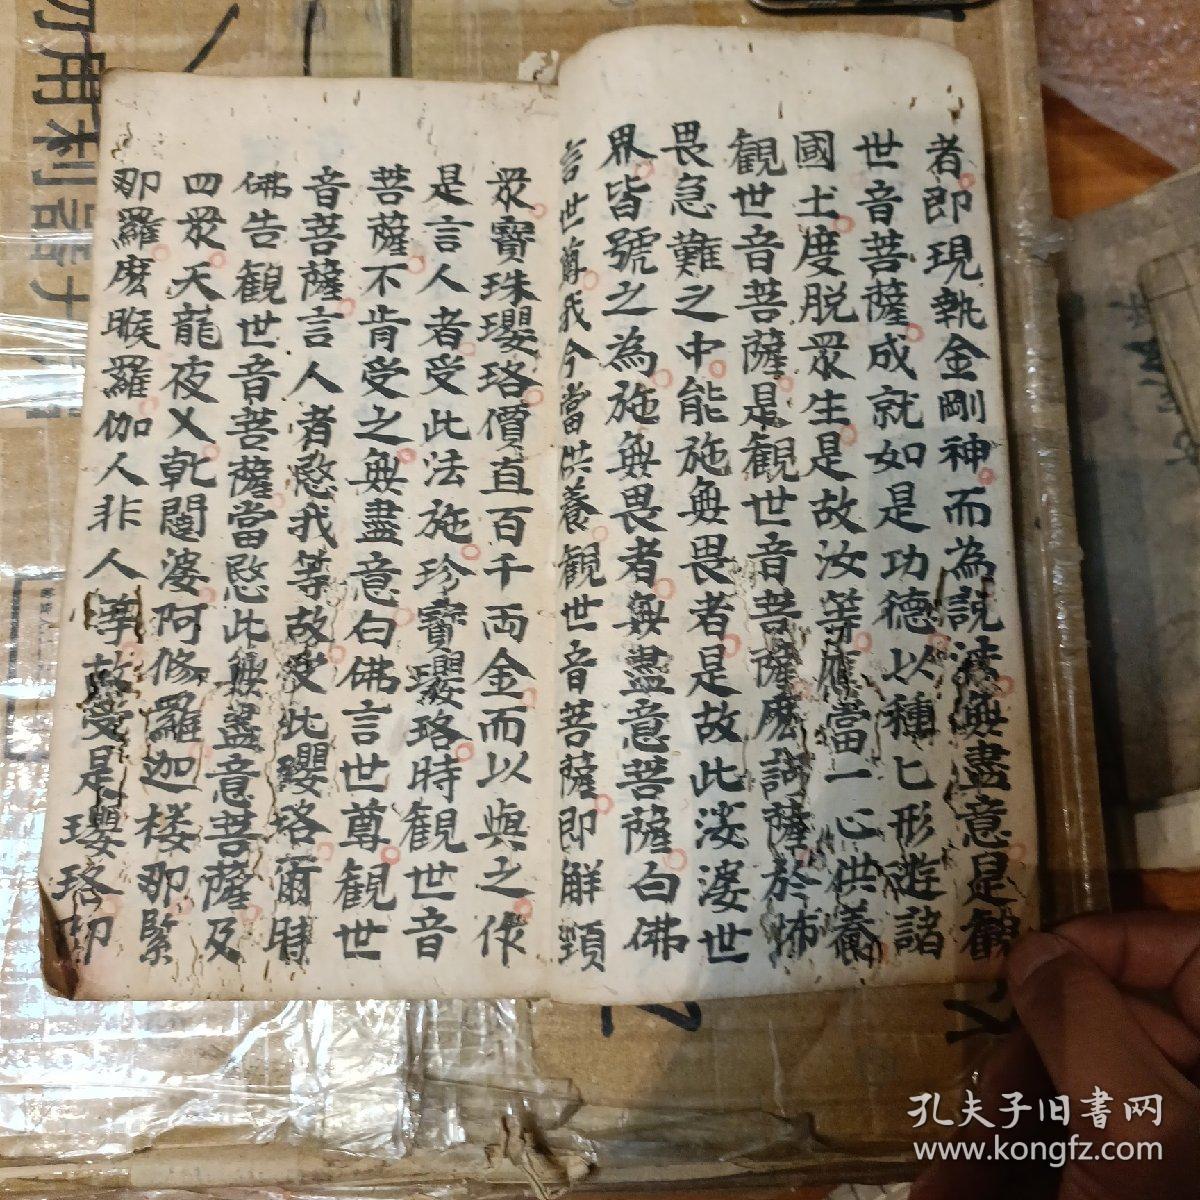 者即現執金剛神而為説法無盡意是觀
世音菩薩成就如是功德以種匕形遊諸
國土度脱眾生是故汝等應當一心供養
觀世音菩薩是觀世音菩薩摩訶薩於怖
畏急難之中能施無畏者是故此娑婆世
界皆號之為施無畏者無盡意菩薩白佛
言世尊我今當供養觀世音菩薩即解頸
眾寶珠瓔珞價直百千両金而以與之作
是言人者受此法施珍寶瓔珞時觀世音
菩薩不肯受之無盡意白佛言世尊觀世
音菩薩言人者愍我等故受此瓔珞爾時
佛告觀世音菩薩當愍此無盡意菩薩及
四眾天龍夜乂乾闥婆阿修羅迦楼那緊
那羅摩睺羅伽人非人等故受是瓔珞即
孔夫子旧書网
www.kongfz.com